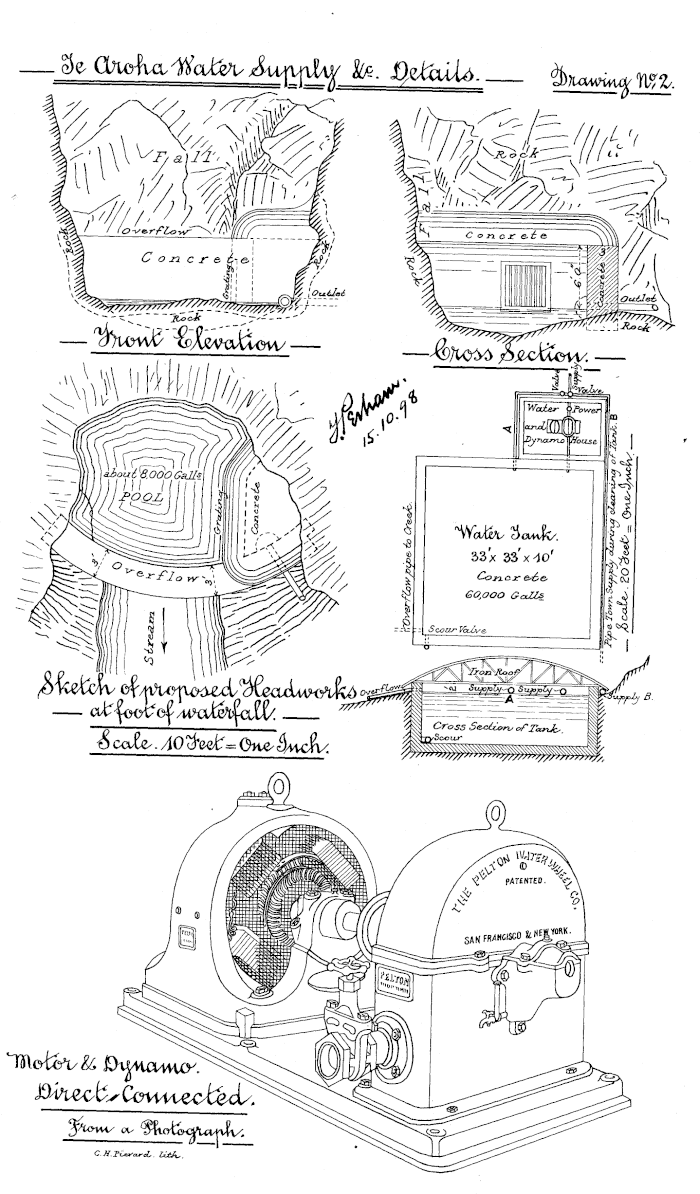 Te Aroha Water Supply &c. Details.
Drawing No. 2.
Fall
Overflow
Concrete
Grating
Rock
Rock
Rock
Outlet
Front Elevation
Rock
Fall
Concrete
Rock
6'0"
Concrete
Outlet
Rock
Cross Section.
15.10.98
about 8,000 Galls
POOL
Grating
Concrete
3'
Overflow
3'
Stream
Sketch of proposed Headworks
at foot of waterfall.
Scale. 10 Feet = One Inch.
Valve
Supply
Valve
Water Power
and
Dynamo House
A
B
Overflow pipe to Creek
Water Tank.
33' x 33' x 10'
Concrete
60,000 Galls
Scour Valve
Pipe Town Supply during cleaning of Tank.
Scale. 20 Feet = One Inch.
Iron Roof
Overflow
Supply
Supply
A
Supply B.
Cross Section of Tank.
Scour
THE PELTON WATER WHEEL CO.
PATENTED.
SAN FRANCISCO & NEW YORK.
PELTON
Motor & Dynamo.
Direct-Connected.
From a Photograph.
C.H. Pierard. lith.